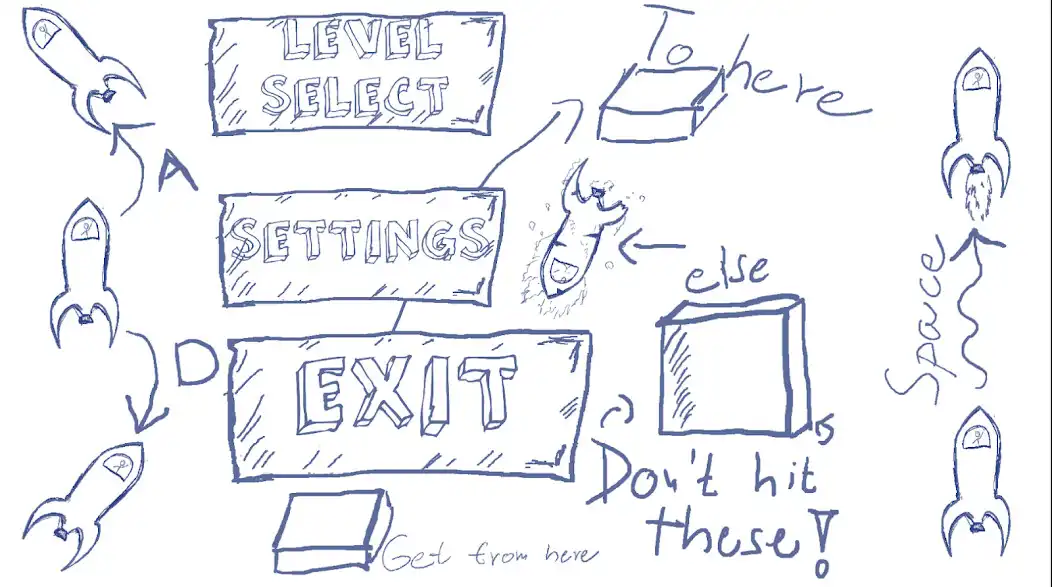 LEVEL
SELECT
To
here
A
SETTINGS
else
Space
D
EXIT
Don't hit
these!
Get from here